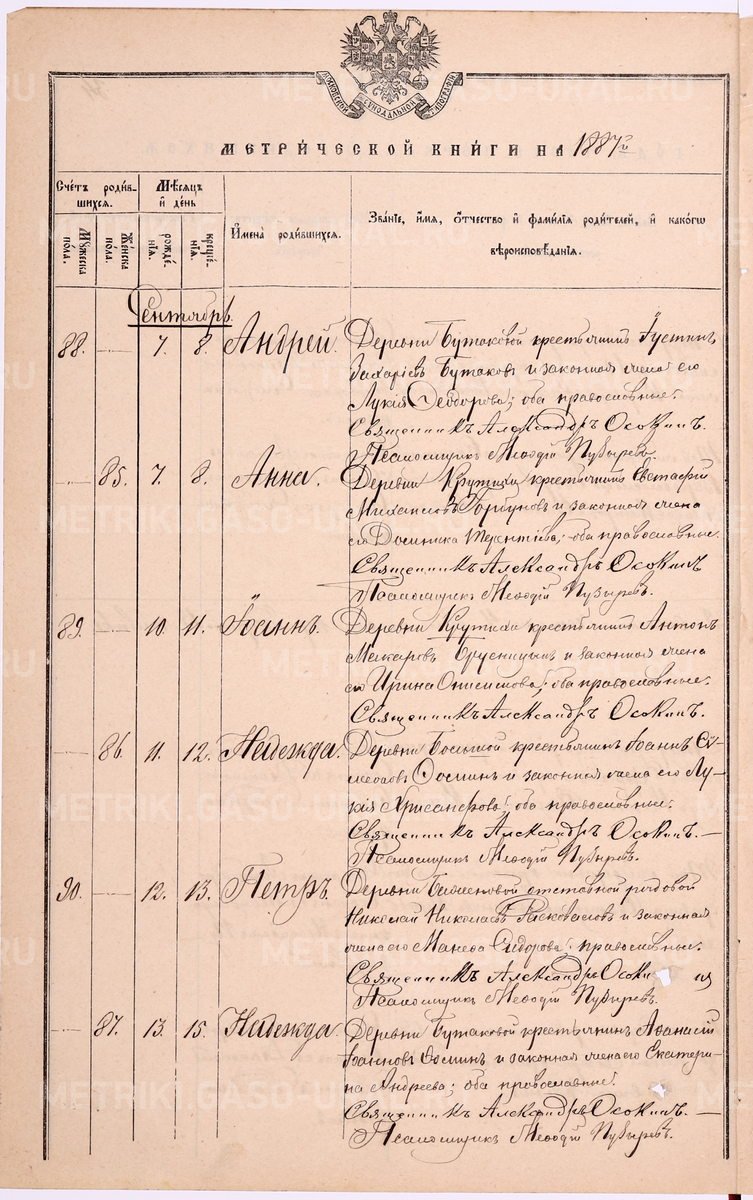 МОСКОВСКОЙ СѴНОДАЛЬНОЙ ТИПОГРАФІИ
МЕТРИ́ЧЕСКОЙ КНИ́ГИ НА 1887 г.
Сче́тъ роди́в-
шихся.
Мꙋ́жеска
по́ла.
Же́нска
по́ла.
Мѣ́сяцъ
и҆ де́нь
рожде́-
нія.
креще́-
нія.
И҆мена̀ роди́вшихся.
Зва́ніе, и҆́мя, ѻ҆́тчество и҆ фами́лія роди́телей, и҆ како́гѡ
вѣроисповѣ́данія.
Сентябрь.
88. — 7. 8. Андрей. Деревни Бутаковой крестьянинъ Іустинъ
Захаріевъ Бутаковъ и законная жена его
Лукія Ѳеодорова; оба православные.
Священникъ Александръ Осокинъ.
Псаломщикъ Меѳодій Пузыревъ.
— 85. 7. 8. Анна. Деревни Крутихи крестьянинъ Евстафій
Михаиловъ Горбуновъ и законная жена
его Домника Терентіева; оба православные.
Священникъ Александръ Осокинъ
Псаломщикъ Меѳодій Пузыревъ.
89. — 10. 11. Іоаннъ. Деревни Крутихи крестьянинъ Антонъ
Макаровъ Брусницынъ и законная жена
его Ирина Онисимова; оба православные.
Священникъ Александръ Осокинъ.
— 86. 11. 12. Надежда. Деревни Большой крестьянинъ Іоаннъ Си-
меоновъ Ѳоминъ и законная жена его Лу-
кія Хрисанѳова; оба православные.
Священникъ Александръ Осокинъ. —
Псаломщикъ Меѳодій Пузыревъ.
90. — 12. 13. Петръ. Деревни отставной рядовой
Николай Николаевъ и законная
жена его Сидорова; православные.
Священникъ Александръ Осокинъ
Псаломщикъ Меѳодій Пузыревъ.
— 87. 13. 15. Надежда. Деревни Бутаковой крестьянинъ Аѳанасій
Іоанновъ Ѳоминъ и законная жена его Екатери-
на Андреева; оба православные.
Священникъ Александръ Осокинъ. —
Псаломщикъ Меѳодій Пузыревъ.
METRIKI.GASO-URAL.RU